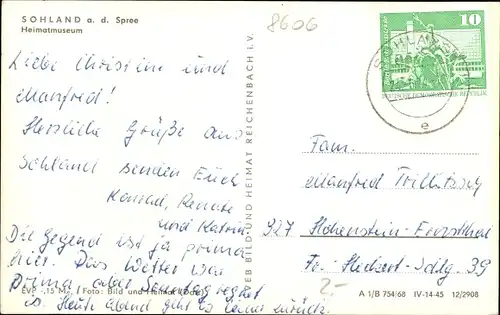 SOHLAND a. d. Spree
Heimatmuseum
8606
10
DEUTSCHE DEMOKRATISCHE REPUBLIK
e
Liebe Christine und
Manfred!
Herzliche Grüße aus
Sohland senden Euch
Konrad, Renate
und Katrin
Die Gegend ist ja prima
hier. Das Wetter war
prima aber Sonntag regnet
es. Heute abend geht es zurück.
VEB BILD UND HEIMAT REICHENBACH I. V.
Fam.
Manfred
927 Hohenstein-Ernstthal
Fr. Heckert-Sdlg. 39
2.-
EVP -,15 M Foto: Bild und Heimat
A 1/B 754/68 IV-14-45 12/2908